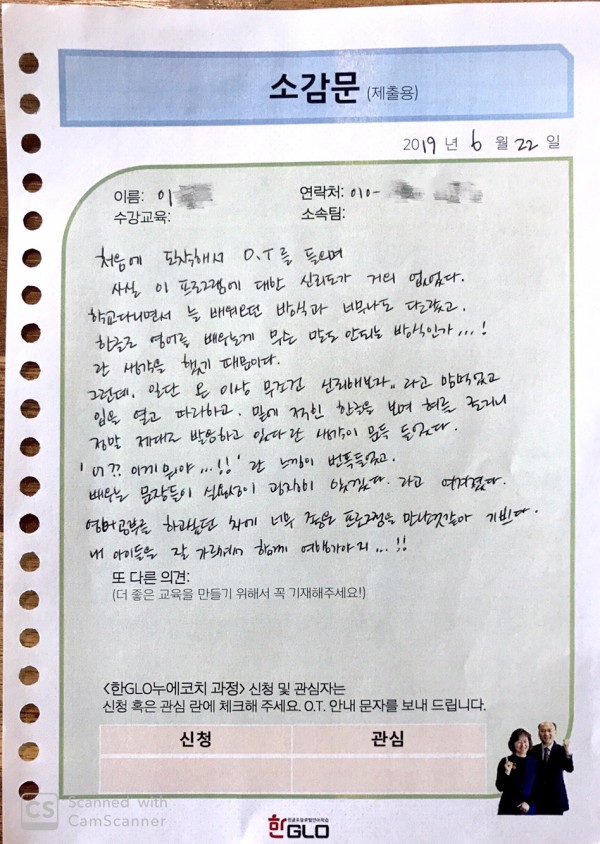 소감문 (제출용)
2019 년 6 월 22 일
이름: 이
연락처: 010-
수강교육:
소속팀:
처음에 도착해서 O.T를 들으며
사실 이 프로그램에 대한 신뢰도가 거의 없었다.
학교다니면서 늘 배워오던 방식과 너무나도 다르렀고.
한글로 영어를 배우는게 무슨 말도 안되는 방식인가...!
란 생각을 했기 때문이다.
그런데, 일단 온 이상 무조건 신뢰해보자.. 라고 맘먹었고
입을 열고 따라하고. 밑에 적힌 한글을 보며 혀를 굴리니
정말 제대로 발음하고 있다란 생각이 문득 들었다.
'어?? 이게 뭐야...!!' 란 느낌이 번뜩들었고.
배우는 문장들이 실용성이 굉장히 있겠다. 라고 여겨졌다.
영어공부를 하고싶던 차에 너무 좋은 프로그램을 만난것같아 기쁘다.
내 아이들을 잘 가르쳐서 함께 여행가야지...!!
또 다른 의견:
(더 좋은 교육을 만들기 위해서 꼭 기재해주세요!)
<한GLO누에코치 과정> 신청 및 관심자는
신청 혹은 관심 란에 체크해 주세요. O.T. 안내 문자를 보내 드립니다.
신청
관심
CS Scanned with
CamScanner
한GLO